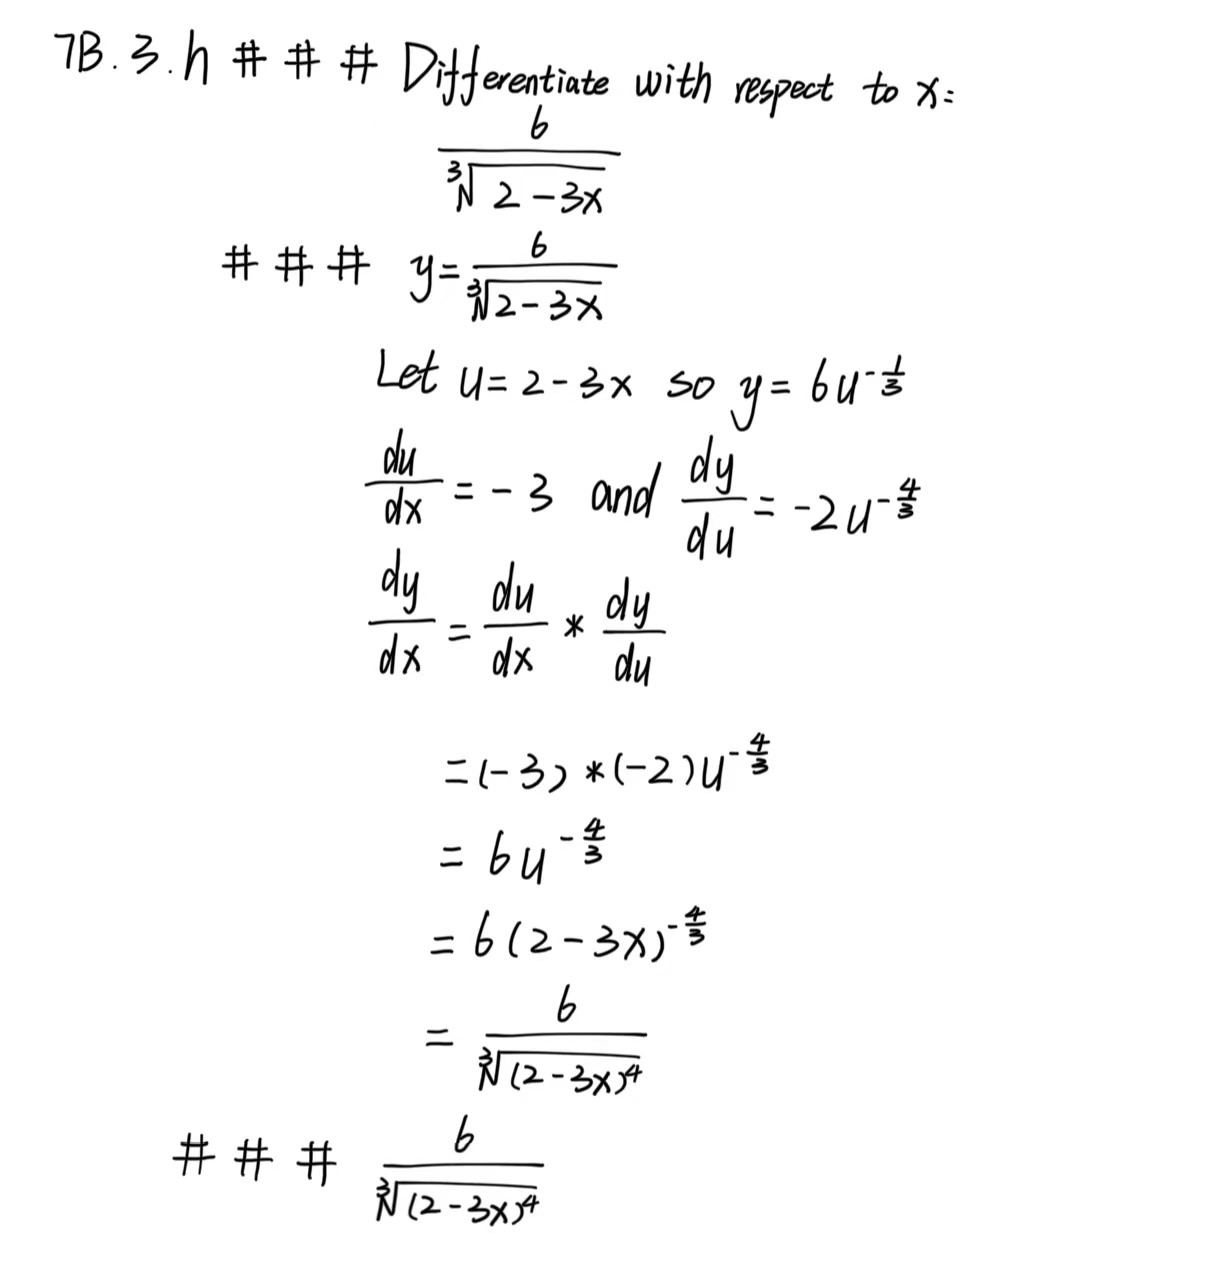 7B.3.h # # # Differentiate with respect to x:
\frac{6}{\sqrt[3]{2-3x}}
# # # y=\frac{6}{\sqrt[3]{2-3x}}
Let u=2-3x so y=6u^{-\frac{1}{3}}
\frac{du}{dx}=-3 and \frac{dy}{du}=-2u^{-\frac{4}{3}}
\frac{dy}{dx}=\frac{du}{dx}*\frac{dy}{du}
=(-3)*(-2)u^{-\frac{4}{3}}
=6u^{-\frac{4}{3}}
=6(2-3x)^{-\frac{4}{3}}
=\frac{6}{\sqrt[3]{(2-3x)^4}}
# # # \frac{6}{\sqrt[3]{(2-3x)^4}}